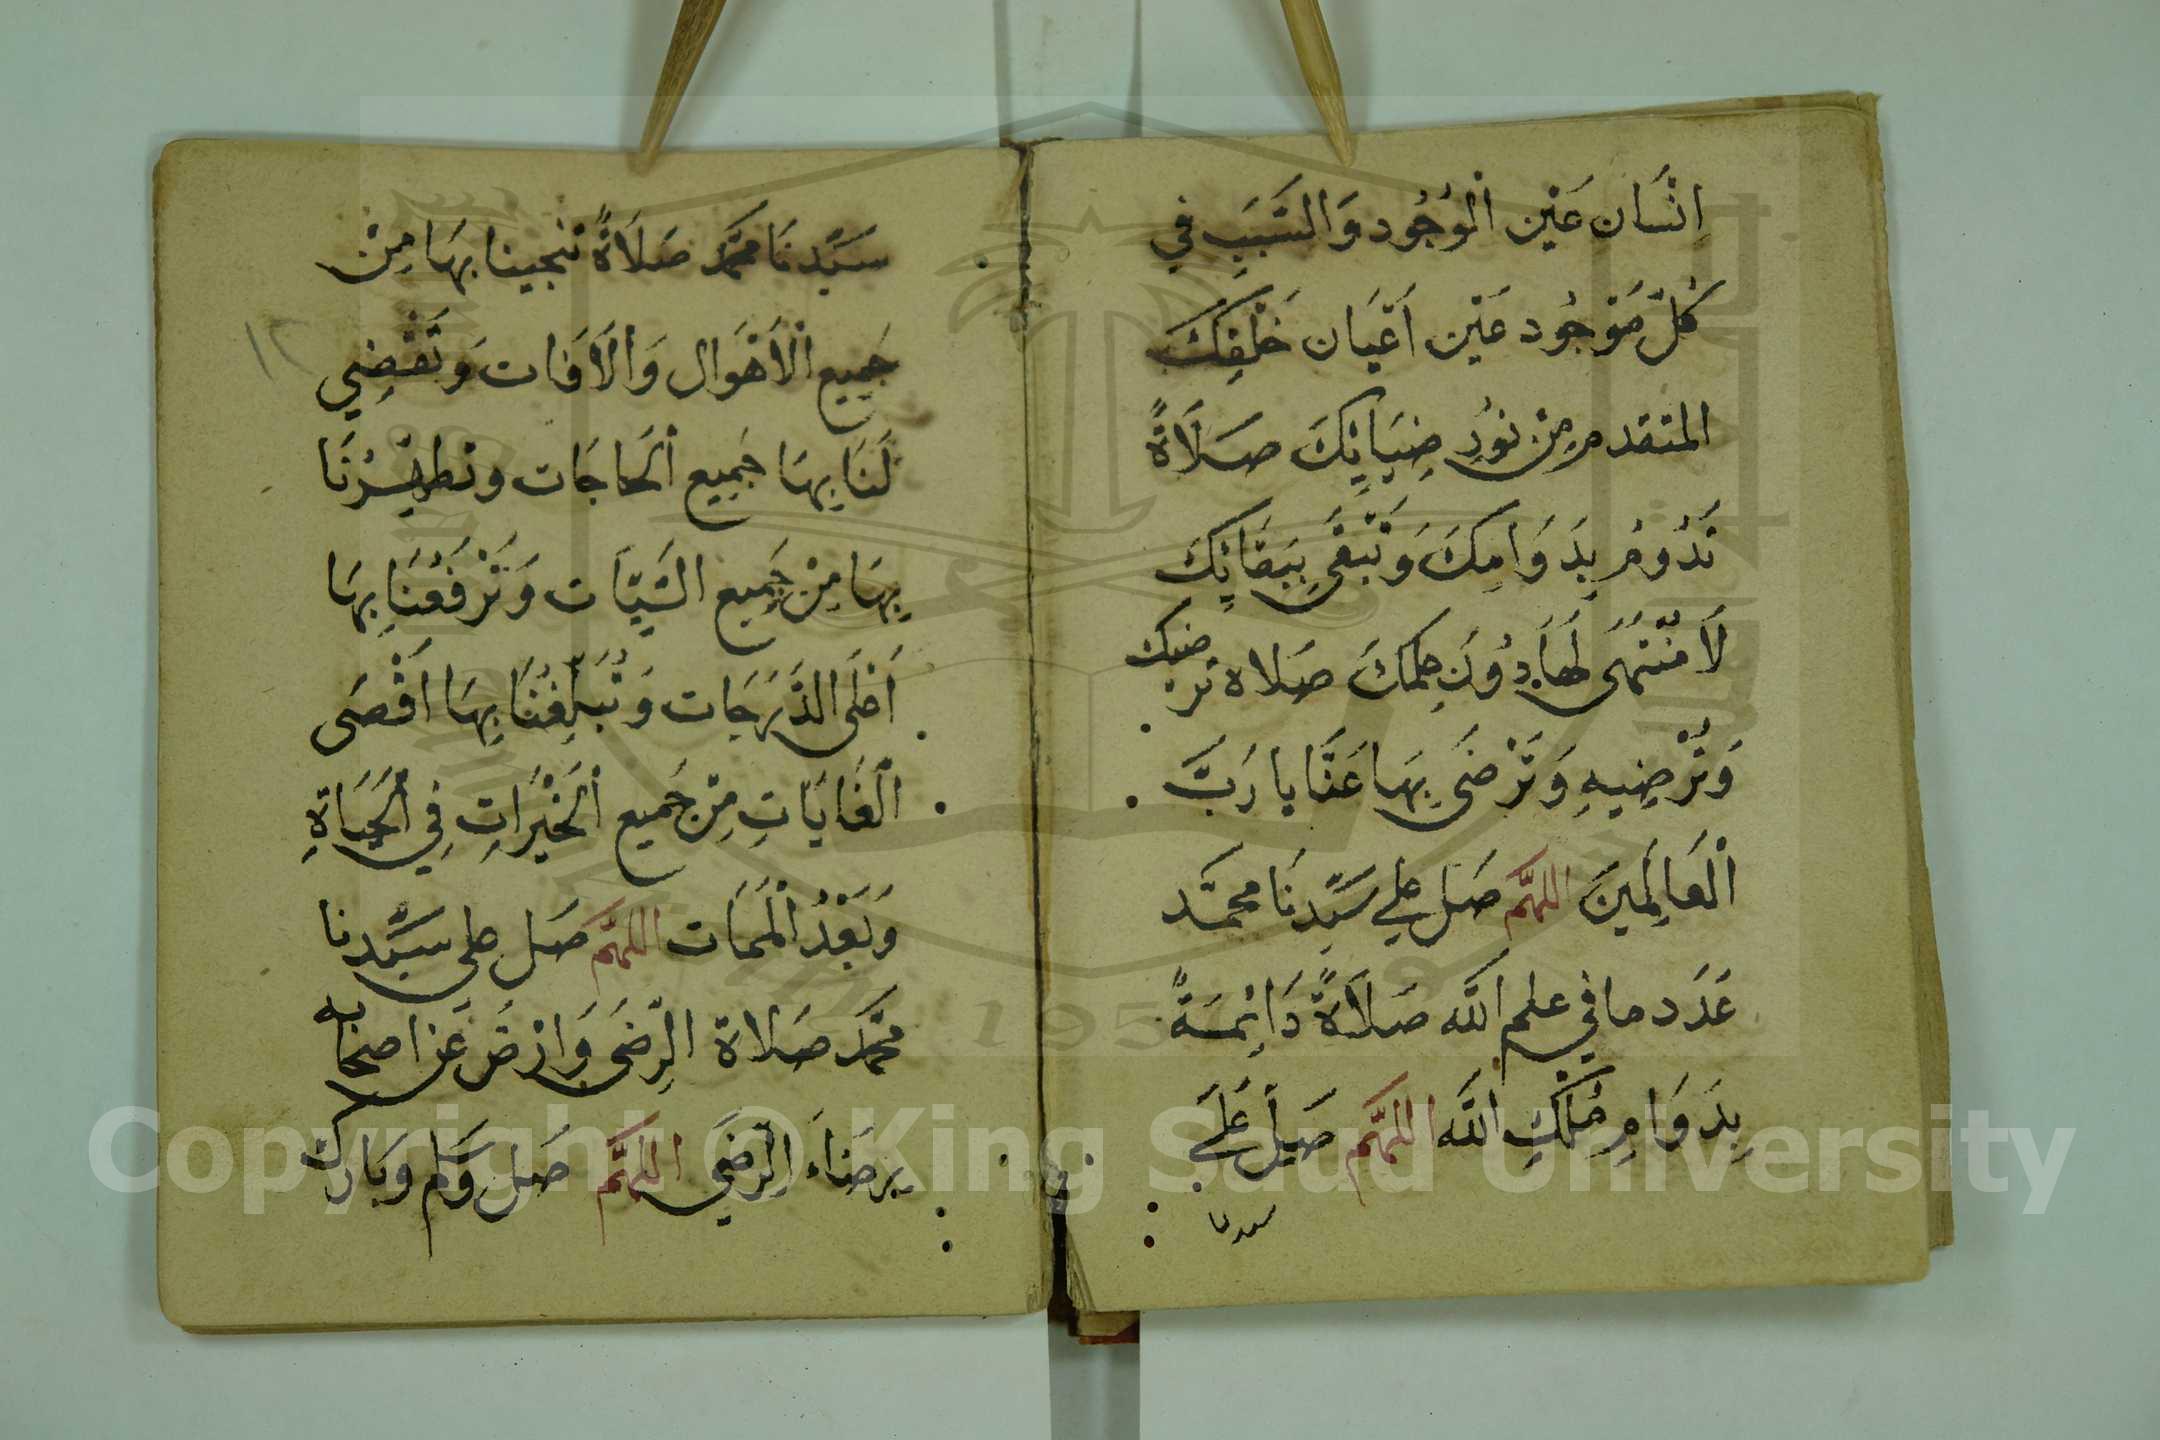 اِنْسَان عَيْن الْوُجُود وَالسَّبَبِ فِي
كُلّ مَوْجُود عَيْن اَعْيَان خَلْقِكَ
المتقدم مِنْ نُورِ ضِيَائِكَ صَلَاةً
تَدُومُ بِدَوَامِكَ وَتَبْقَى بِبَقَائِكَ
لَا مُنْتَهَى لَهَا دُونَ عِلمكَ صَلاة ترضيك
وَتُرْضِيهِ وَتَرْضَى بِهَا عَنَّا يا رَبَّ
الْعَالَمِينَ اللهُمَّ صَل على سَيِّدِنَا محمَّد
عَدَد ما في علم اللَّه صَلَاةً دَائِمَةً
بِدَوَامِ مُلْكِ اللَّه اللهُمَّ صَلِّ عَلَى
سيدنا
سَيِّدنَا محمَّد صَلَاةً تنجينا بهَا مِنْ
جَمِيع الْاَهْوَال وَالْاَفَات وَتَقْضِي
لَنَا بِهَا جَمِيع الْحَاجَات وتطهِّرُنَا
بِهَا مِنْ جَمِيع السَّيِّئَات وَتَرْفَعُنَا بِهَا
اَعْلَى الدَّرَجَات وَتُبَلِّغُنَا بِهَا اَقْصَى
الْغَايَاتِ مِنْ جَمِيع الْخَيْرَاتِ فِي الْحَيَاةِ
وَبَعْدَ الْمَمَات اللهُمَّ صَل على سَيِّدنا
محمَّد صَلاة الرِّضَى وَارْضَ عَن اصحَابه
بِرِضَاءَ الرِّضَى اللهُمَّ صَل وَسَلم وَبَارك
١٢
Copyright © King Saud University
1957